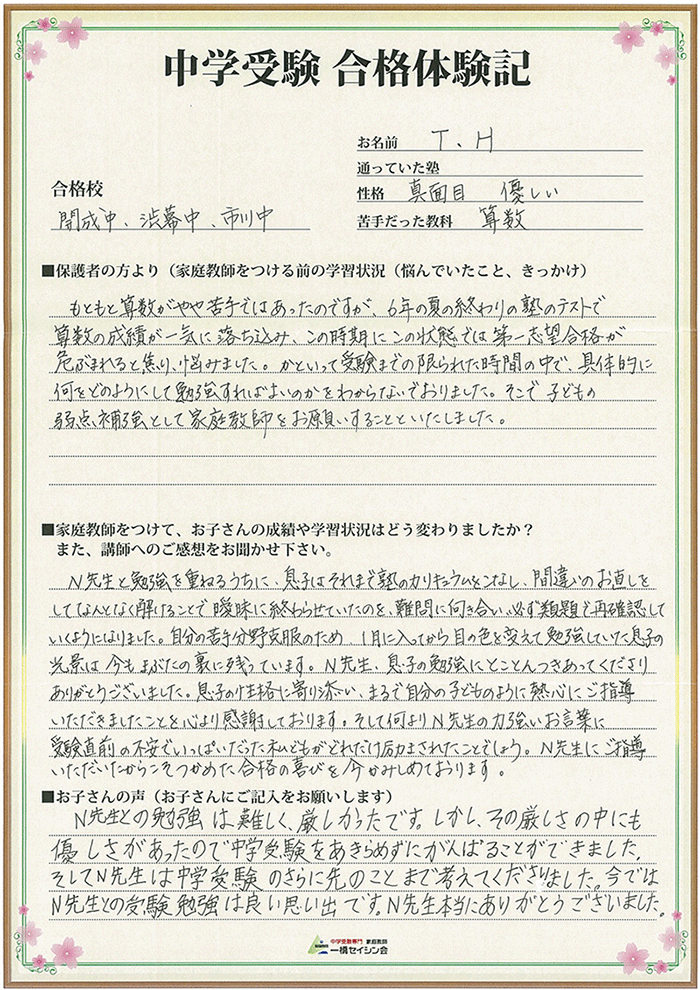 中学受験 合格体験記
お名前 T、H
通っていた塾
合格校
性格 真面目 優しい
開成中、渋幕中、市川中
苦手だった教科 算数
■保護者の方より（家庭教師をつける前の学習状況（悩んでいたこと、きっかけ）
もともと算数がやや苦手ではあったのですが、6年の夏の終わりの塾のテストで
算数の成績が一気に落ち込み、この時期にこの状態では第一志望合格が
危ぶまれると焦り、悩みました。かといって受験までの限られた時間の中で、具体的に
何をどのようにして勉強すればよいのかをわからないでおりました。そこで子どもの
弱点補強として家庭教師をお願いすることといたしました。
■家庭教師をつけて、お子さんの成績や学習状況はどう変わりましたか？
また、講師へのご感想をお聞かせ下さい。
N先生と勉強を重ねるうちに、息子はそれまで塾のカリキュラムをこなし、間違いのお直しを
してなんとなく解けることで曖昧に終わらせていたのを、難問に向き合い、必ず類題で再確認して
いくようになりました。自分の苦手分野克服のため、1月に入ってから目の色を変えて勉強していた息子の
光景は今もまぶたの裏に残っています。N先生、息子の勉強にとことんつきあってくださり
ありがとうございました。息子の性格に寄り添い、まるで自分の子どものように熱心にご指導
いただきましたことを心より感謝しております。そして何よりN先生の力強いお言葉に
受験直前の不安でいっぱいだった私どもがどれだけ励まされたことでしょう。N先生にご指導
いただいたからこそつかめた合格の喜びを今かみしめております。
■お子さんの声（お子さんにご記入をお願いします）
N先生との勉強は難しく、厳しかったです。しかし、その厳しさの中にも
優しさがあったので中学受験をあきらめずにがんばることができました。
そしてN先生は中学受験のさらに先のことまで考えてくださいました。今では
N先生との受験勉強は良い思い出です。N先生本当にありがとうございました。
中学受験専門 家庭教師
一橋セイシン会